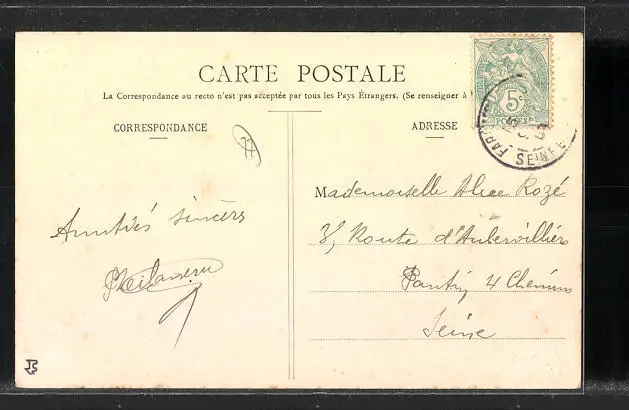 CARTE POSTALE
La Correspondance au recto n'est pas acceptée par tous les Pays Étrangers. (Se renseigner à
CORRESPONDANCE
ADRESSE
5c
POSTES
SEINE
Mademoiselle Alice Rozé
8, Route d'Aubervilliers
Pantin 4 Chemins
Seine
Amitiés sincères